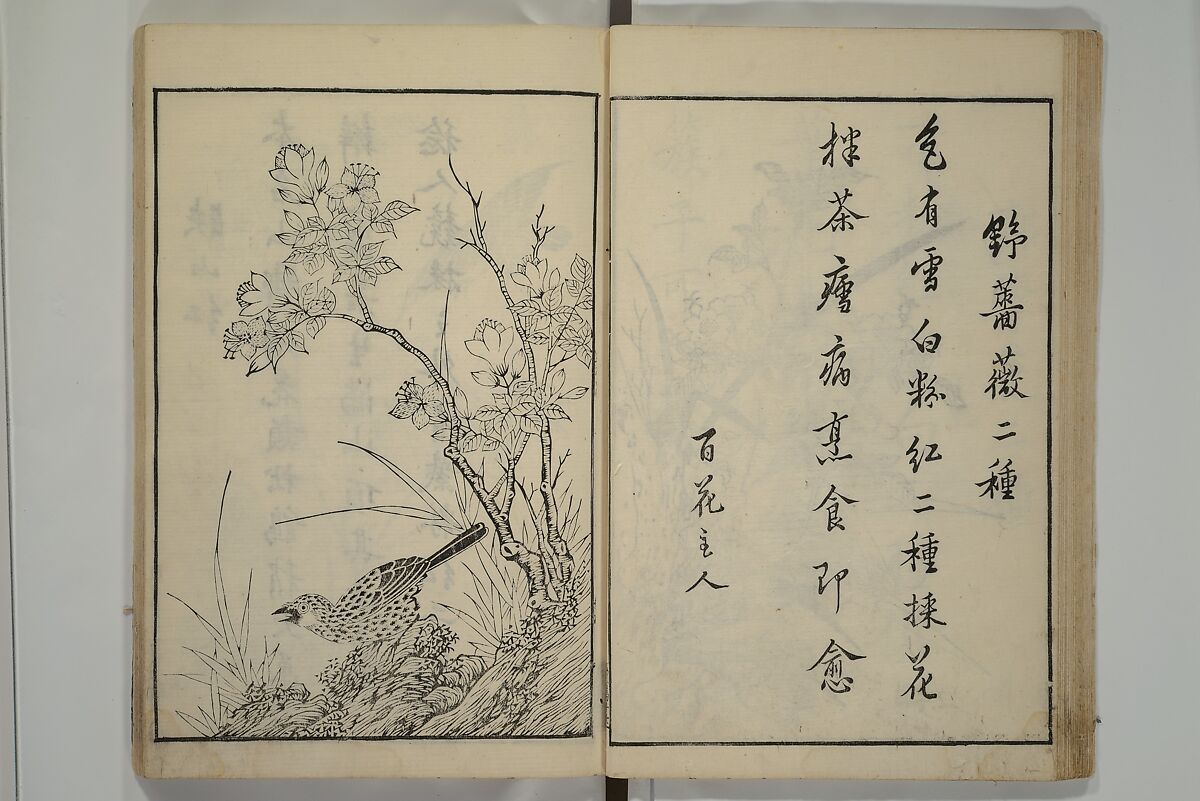 野薔薇二種
色有雪白粉紅二種採花
拌茶瘧病烹食即愈
百花主人